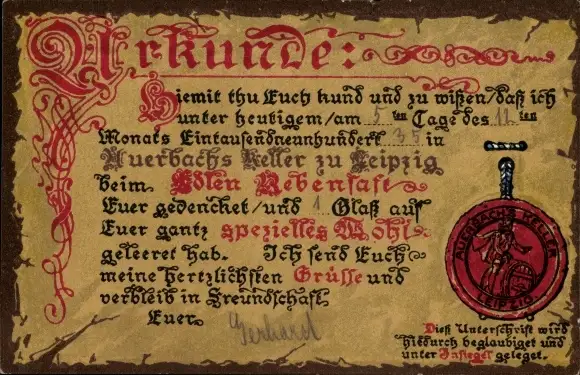 Urkunde:
Hiemit thu Euch kund und zu wißen/daß ich
unter heutigem/am 5ten Tage des 11ten
Monats Eintausendneunhundert 35 in
Auerbachs Keller zu Leipzig
beim Edlen Rebensaft
Euer gedencket/und 1 Glaß auf
Euer gantz spezielles Wohl
geleeret hab. Ich send Euch
meine hertzlichsten Grüsse und
verbleib in Freundschaft
Euer Gerhard
AUERBACHS KELLER
LEIPZIG
Dieß Unterschrift wird
hiedurch beglaubiget und
unter Insiegel geleget.